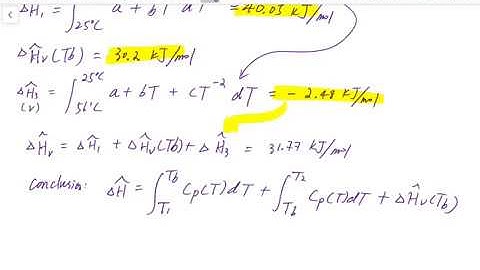 ΔĤ₁ = ∫₂₅°C a + bT dT = 40.03 kJ/mol
ΔĤv(Tb) = 30.2 kJ/mol
ΔĤ₃ (v) = ∫₅₆°C^25°C a + bT + cT⁻² dT = - 2.48 kJ/mol
ΔĤv = ΔĤ₁ + ΔĤv(Tb) + ΔĤ₃ = 31.77 kJ/mol
Conclusion: ΔĤ = ∫T₁^Tb Cp(T)dT + ∫Tb^T₂ Cp(T)dT + ΔĤv(Tb)